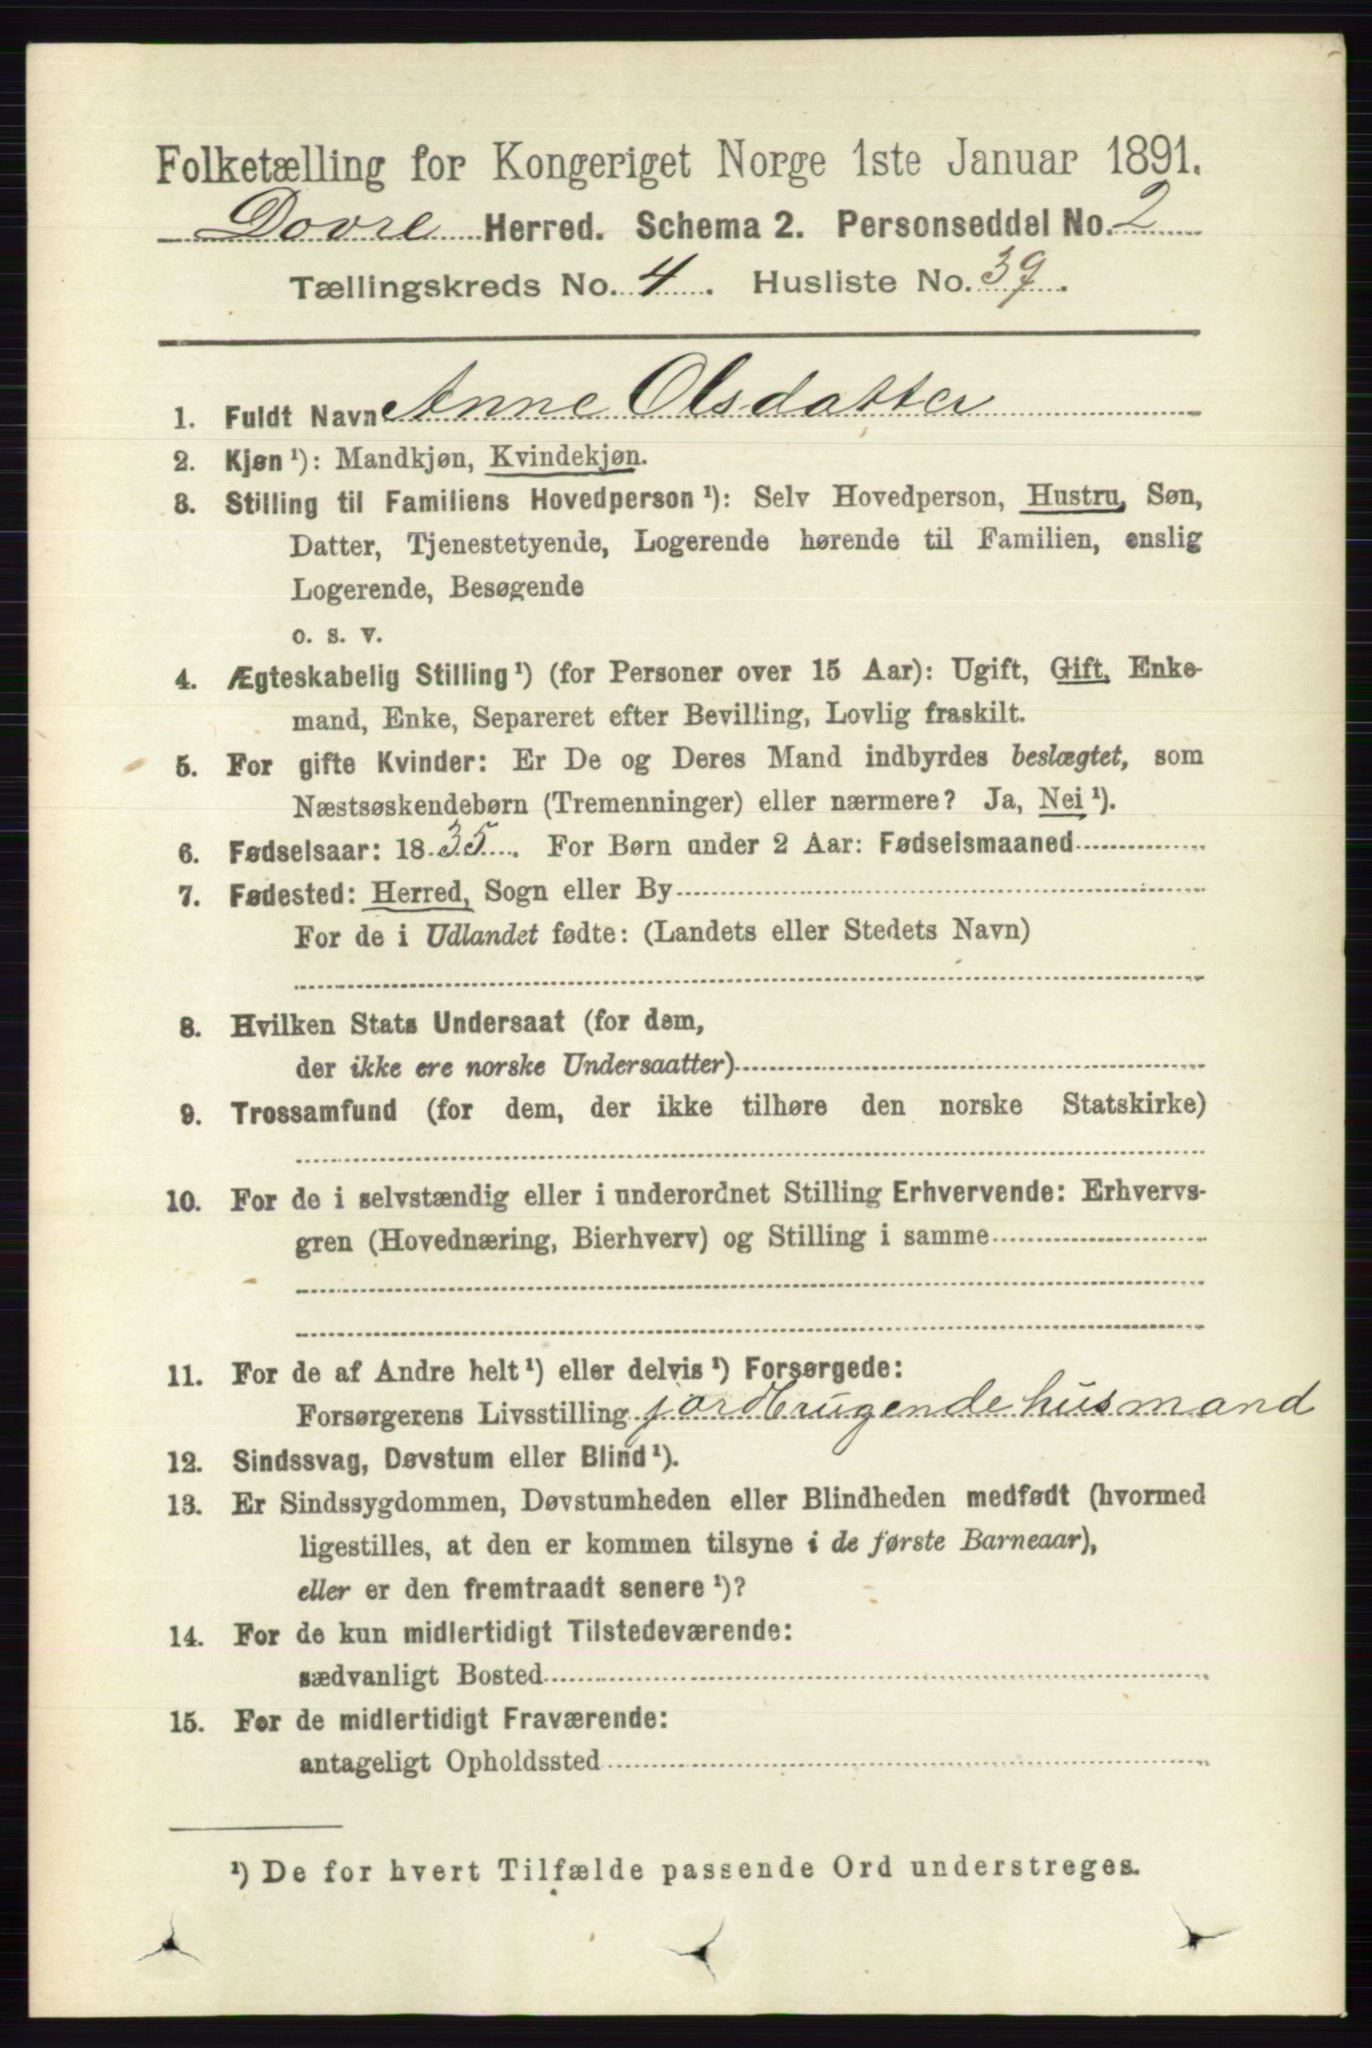 Folketælling for Kongeriget Norge 1ste Januar 1891.
Dovre Herred. Schema 2. Personseddel No. 2
Tællingskreds No. 4. Husliste No. 39.
1. Fuldt Navn Anne Olsdatter
2. Kjøn ¹): Mandkjøn, Kvindekjøn.
3. Stilling til Familiens Hovedperson ¹): Selv Hovedperson, Hustru, Søn,
Datter, Tjenestetyende, Logerende hørende til Familien, enslig
Logerende, Besøgende
o. s. v.
4. Ægteskabelig Stilling ¹) (for Personer over 15 Aar): Ugift, Gift, Enke-
mand, Enke, Separeret efter Bevilling, Lovlig fraskilt.
5. For gifte Kvinder: Er De og Deres Mand indbyrdes beslægtet, som
Næstsøskendebørn (Tremenninger) eller nærmere? Ja, Nei ¹).
6. Fødselsaar: 1835. For Børn under 2 Aar: Fødselsmaaned
7. Fødested: Herred, Sogn eller By
For de i Udlandet fødte: (Landets eller Stedets Navn)
8. Hvilken Stats Undersaat (for dem,
der ikke ere norske Undersaatter)
9. Trossamfund (for dem, der ikke tilhøre den norske Statskirke)
10. For de i selvstændig eller i underordnet Stilling Erhvervende: Erhvervs-
gren (Hovednæring, Bierhverv) og Stilling i samme
11. For de af Andre helt ¹) eller delvis ¹) Forsørgede:
Forsørgerens Livsstilling jordbrugende husmand
12. Sindssvag, Døvstum eller Blind ¹).
13. Er Sindssygdommen, Døvstumheden eller Blindheden medfødt (hvormed
ligestilles, at den er kommen tilsyne i de første Barneaar),
eller er den fremtraadt senere ¹)?
14. For de kun midlertidigt Tilstedeværende:
sædvanligt Bosted
15. For de midlertidigt Fraværende:
antageligt Opholdssted
¹) De for hvert Tilfælde passende Ord understreges.